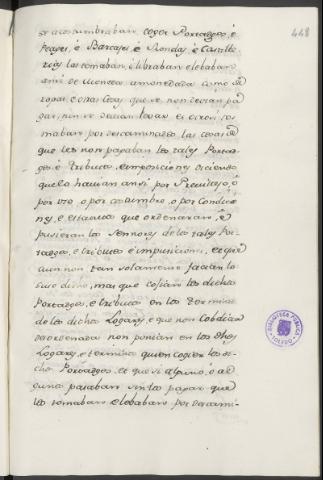 448
se acostumbraban coger Portazgos, è
Peages, è Barcages è Rondas, è Castille
rias las tomaban, è libraban èlebaban
ansi de Moneda amonedada como de
ropas è otras Cosas que se non devian pa
gar, nin se devian levar et otrosi to
maban por descaminados las cosas de
que les non pagaban los tales Portaz
gos è tributos, è imposiciones diciendo
que lo havian ansi por Previlejo, ò
por uso, o por costumbre, o por Condicio
nes, e estatutos que ordenaran, è
pusieran los Sennores de los tales Por
tazgos, e tributos è imposiciones, et que
aun non tan solamente facian lo
suso dicho, mas que cogian los dichos
Portazgos, e tributos en los Terminos
de los dichos Logares, e que non
ordenaza non ponian en los dhos
Logares, e terminos quien cogiese los di
chos Portazgos, et que si alguno, ò al
gunos pasaban sin los pagar que
los tomaban elebaban por descami-
BIBLIOTECA PUBLICA
TOLEDO